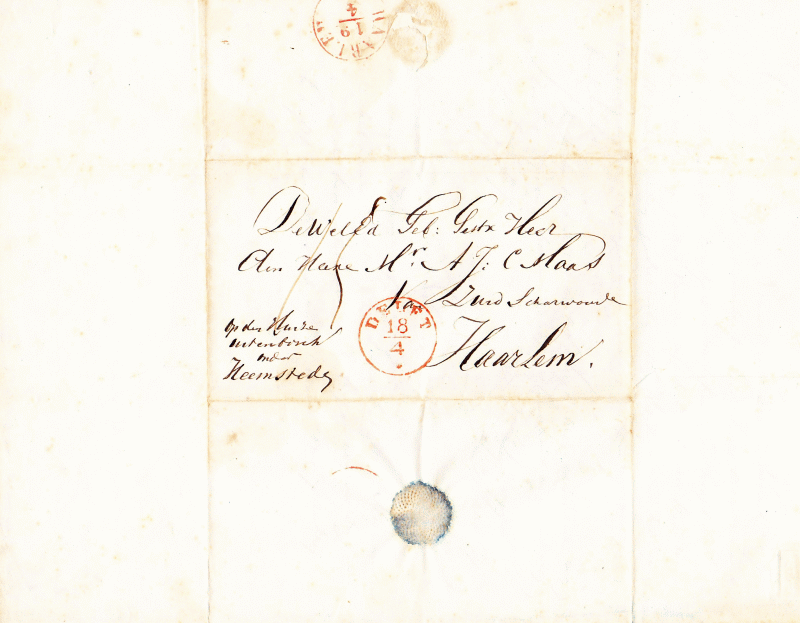 HAARLEM
19
4
De WelEd Geb: Gestr Heer
den Heere Mr. A J: C Maas
Van Zuid Scharwoude
DELFT
18
4
Haarlem.
op den Huize
onder
Heemstede